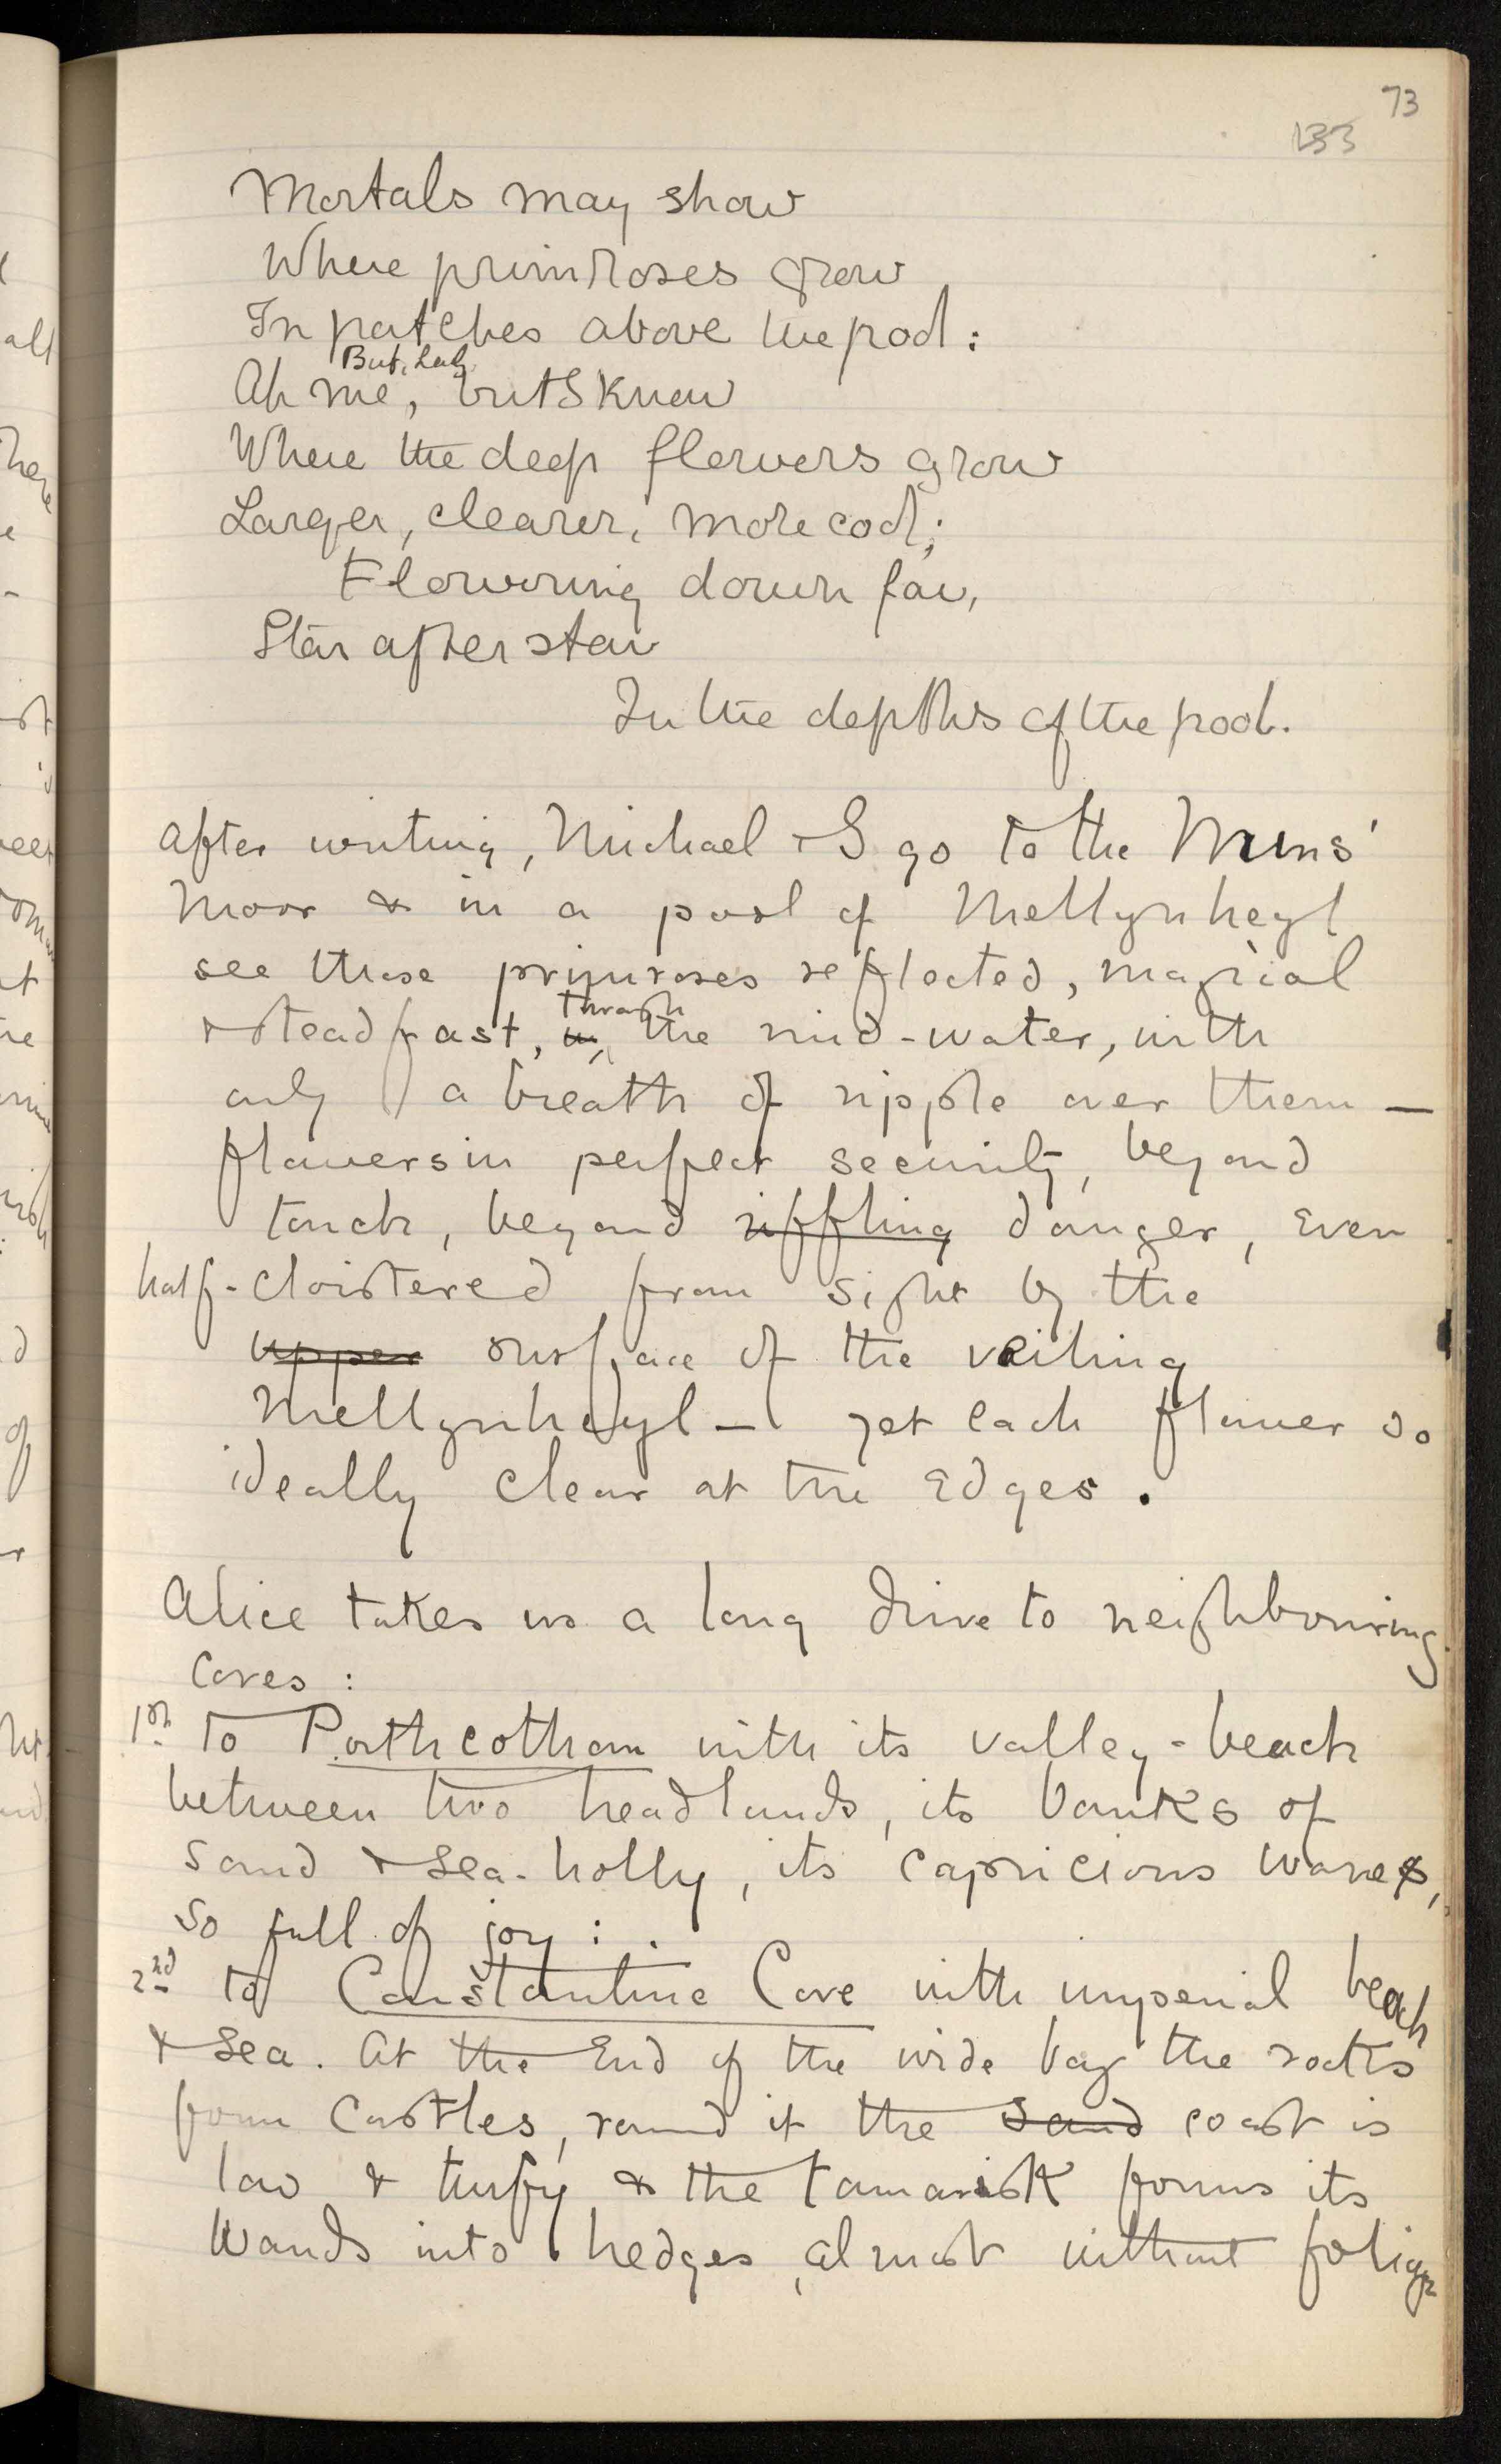 73
133
Mortals may show
Where primroses grow
In patches above the pool:
But, Lady
Ah me, but I know
Where the deep flowers grow
Larger, clearer, more cool;
Flowering down far,
Star after star
In the depths of the pool.
After writing, Michael & I go to the Nuns'
Moor & in a pool of Mellynheyl
see these primroses reflected, magical
through
& steadfast, in the mid-water, with
only a breath of ripple over them —
flowers in perfect security, beyond
touch, beyond riffling danger, even
half-cloistered from sight by the
upper surface of the veiling
Mellynheyl — yet each flower so
ideally clear at the edges.
Alice takes us a long drive to neighbouring
Coves:
1st to Porthcothan with its valley-beach
between two headlands, its banks of
sand & sea-holly, its capricious waves,
so full of joy:
2nd to Constantine Cove with imperial beach
& sea. At the End of the wide bay the rocks
form Castles, round it the sand coast is
low & turfy & the tamarisk forms its
wands into hedges, almost without foliage